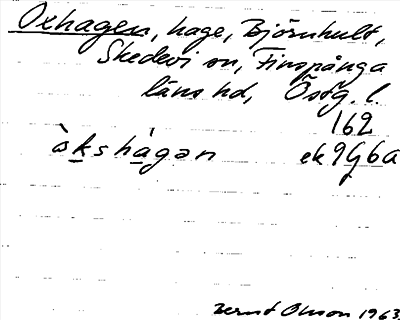 Oxhagen, hage, Björnhult,
Skedevi sn, Finspånga
läns hd, Östg. l.
162
òkshàgən ek 9G6a
Bernt Olsson 1963.